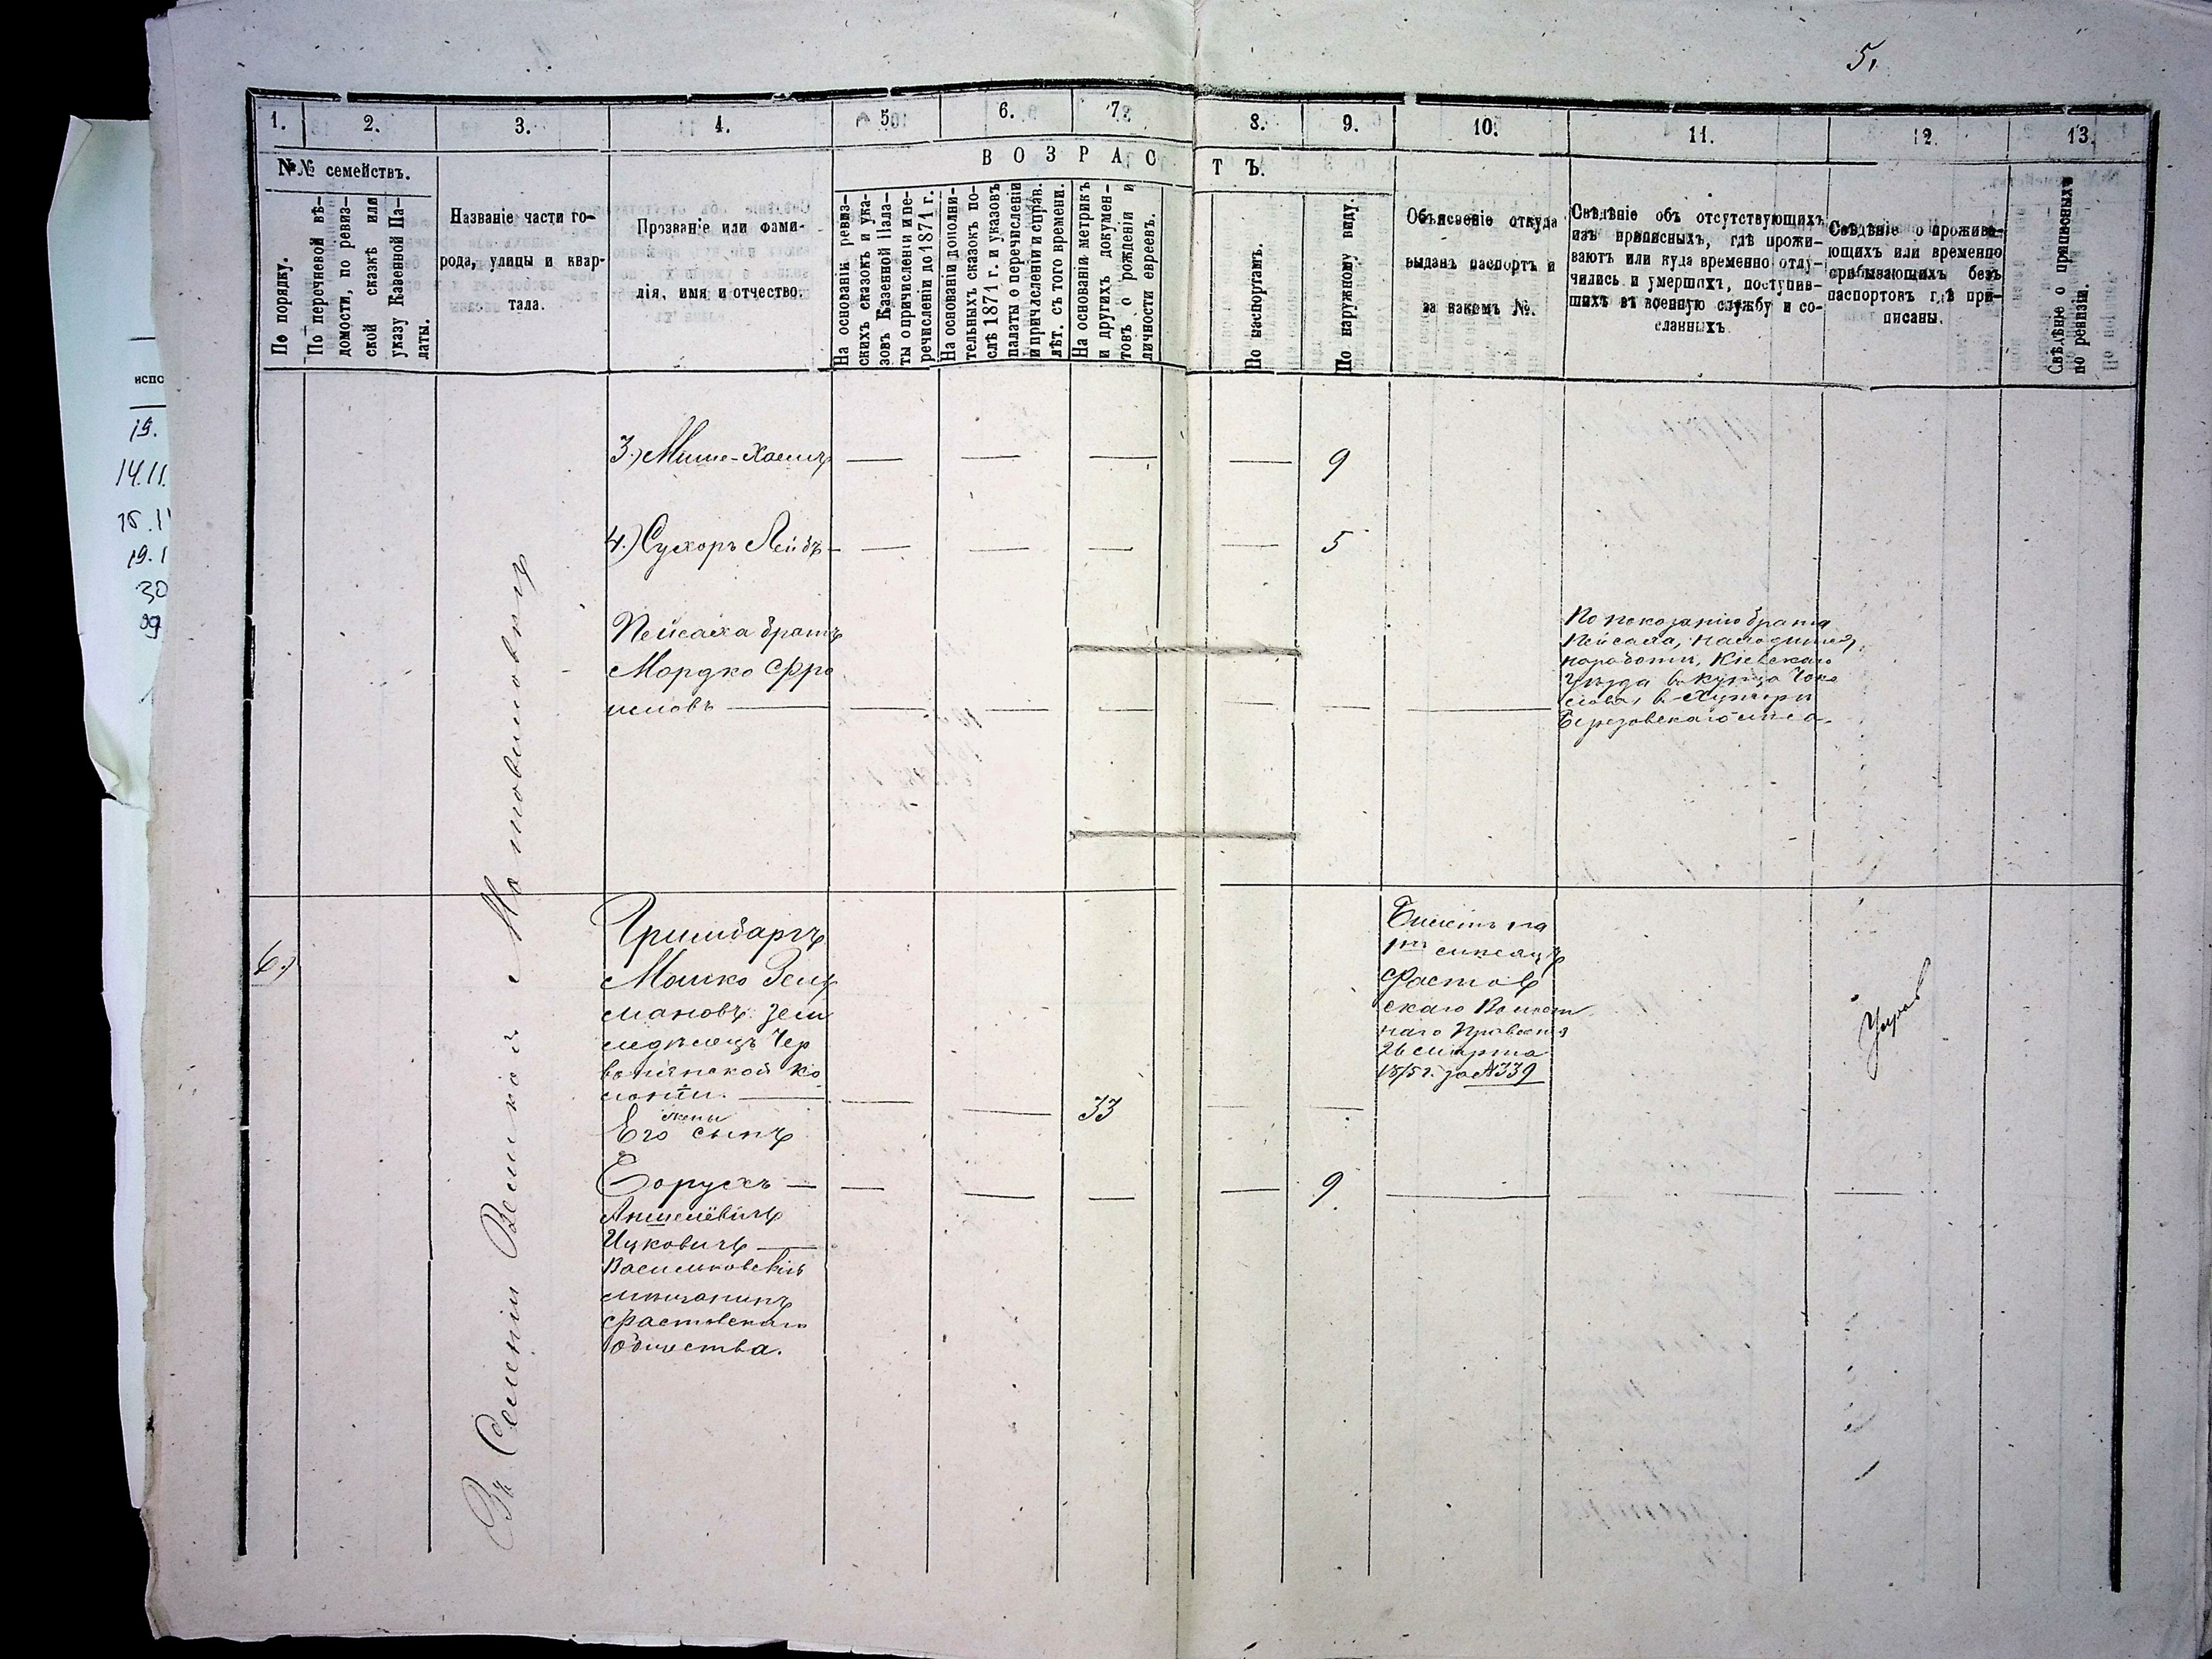 5.
1. 2. 3. 4. 5. 6. 7. 8. 9. 10. 11. 12. 13.
№№ семействъ.
По порядку.
По перечневой вѣ-
домости, по ревиз-
ской сказкѣ или
указу Казенной Па-
латы.
Названіе части го-
рода, улицы и квар-
тала.
Прозваніе или фами-
лія, имя и отчество.
ВОЗРАСТЪ.
На основаніи ревиз-
скихъ сказокъ и ука-
зовъ Казенной Пала-
ты о причисленіи и пе-
речисленіи до 1871 г.
На основаніи дополни-
тельныхъ сказокъ по-
слѣ 1871 г. и указовъ
палаты о перечисленіи
и причисленіи и справ.
лѣт. съ того времени.
На основаніи метрикъ
и другихъ докумен-
товъ о рожденіи и
личности евреевъ.
По паспортамъ.
По наружному виду.
Объясненіе откуда
выданъ паспортъ и
за какимъ №.
Свѣдѣніе объ отсутствующихъ
изъ приписныхъ, гдѣ прожи-
ваютъ или куда временно отлу-
чились и умершихъ, поступив-
шихъ въ военную службу и со-
сланныхъ.
Свѣдѣніе о прожива-
ющихъ или временно
пребывающихъ безъ
паспортовъ гдѣ при-
писаны.
Свѣдѣніе о приписныхъ
по ревизіи.
испо
19.
14.11.
19.1
30
Въ Селеніи Великой Мотовиловкѣ
3.) Мише-Хаимъ — — — — 9
4.) Сухоръ Лейбъ — — — — — 5
Пейсаха братъ
Мордко Фро
имовъ — — — — — — —
По показанію брата
Пейсаха, находится
на работѣ, Кіевскаго
Уѣзда в купца
в Хуторѣ
6.)
Гримбаргъ
Мошко Зель
мановъ земле
дѣлецъ Чер
волинской ко
лоніи. — — — 33 — —
Билетъ на
1нъ мѣсяцъ
Фастов
скаго Волост
наго Правленія
26 Марта
1875 г. за №339
Его жены сынъ
Борухъ — — — — — 9. — — —
Аншелевичъ
Ицковичъ —
Васильковскій
мѣщанинъ
Фастовскаго
Общества.